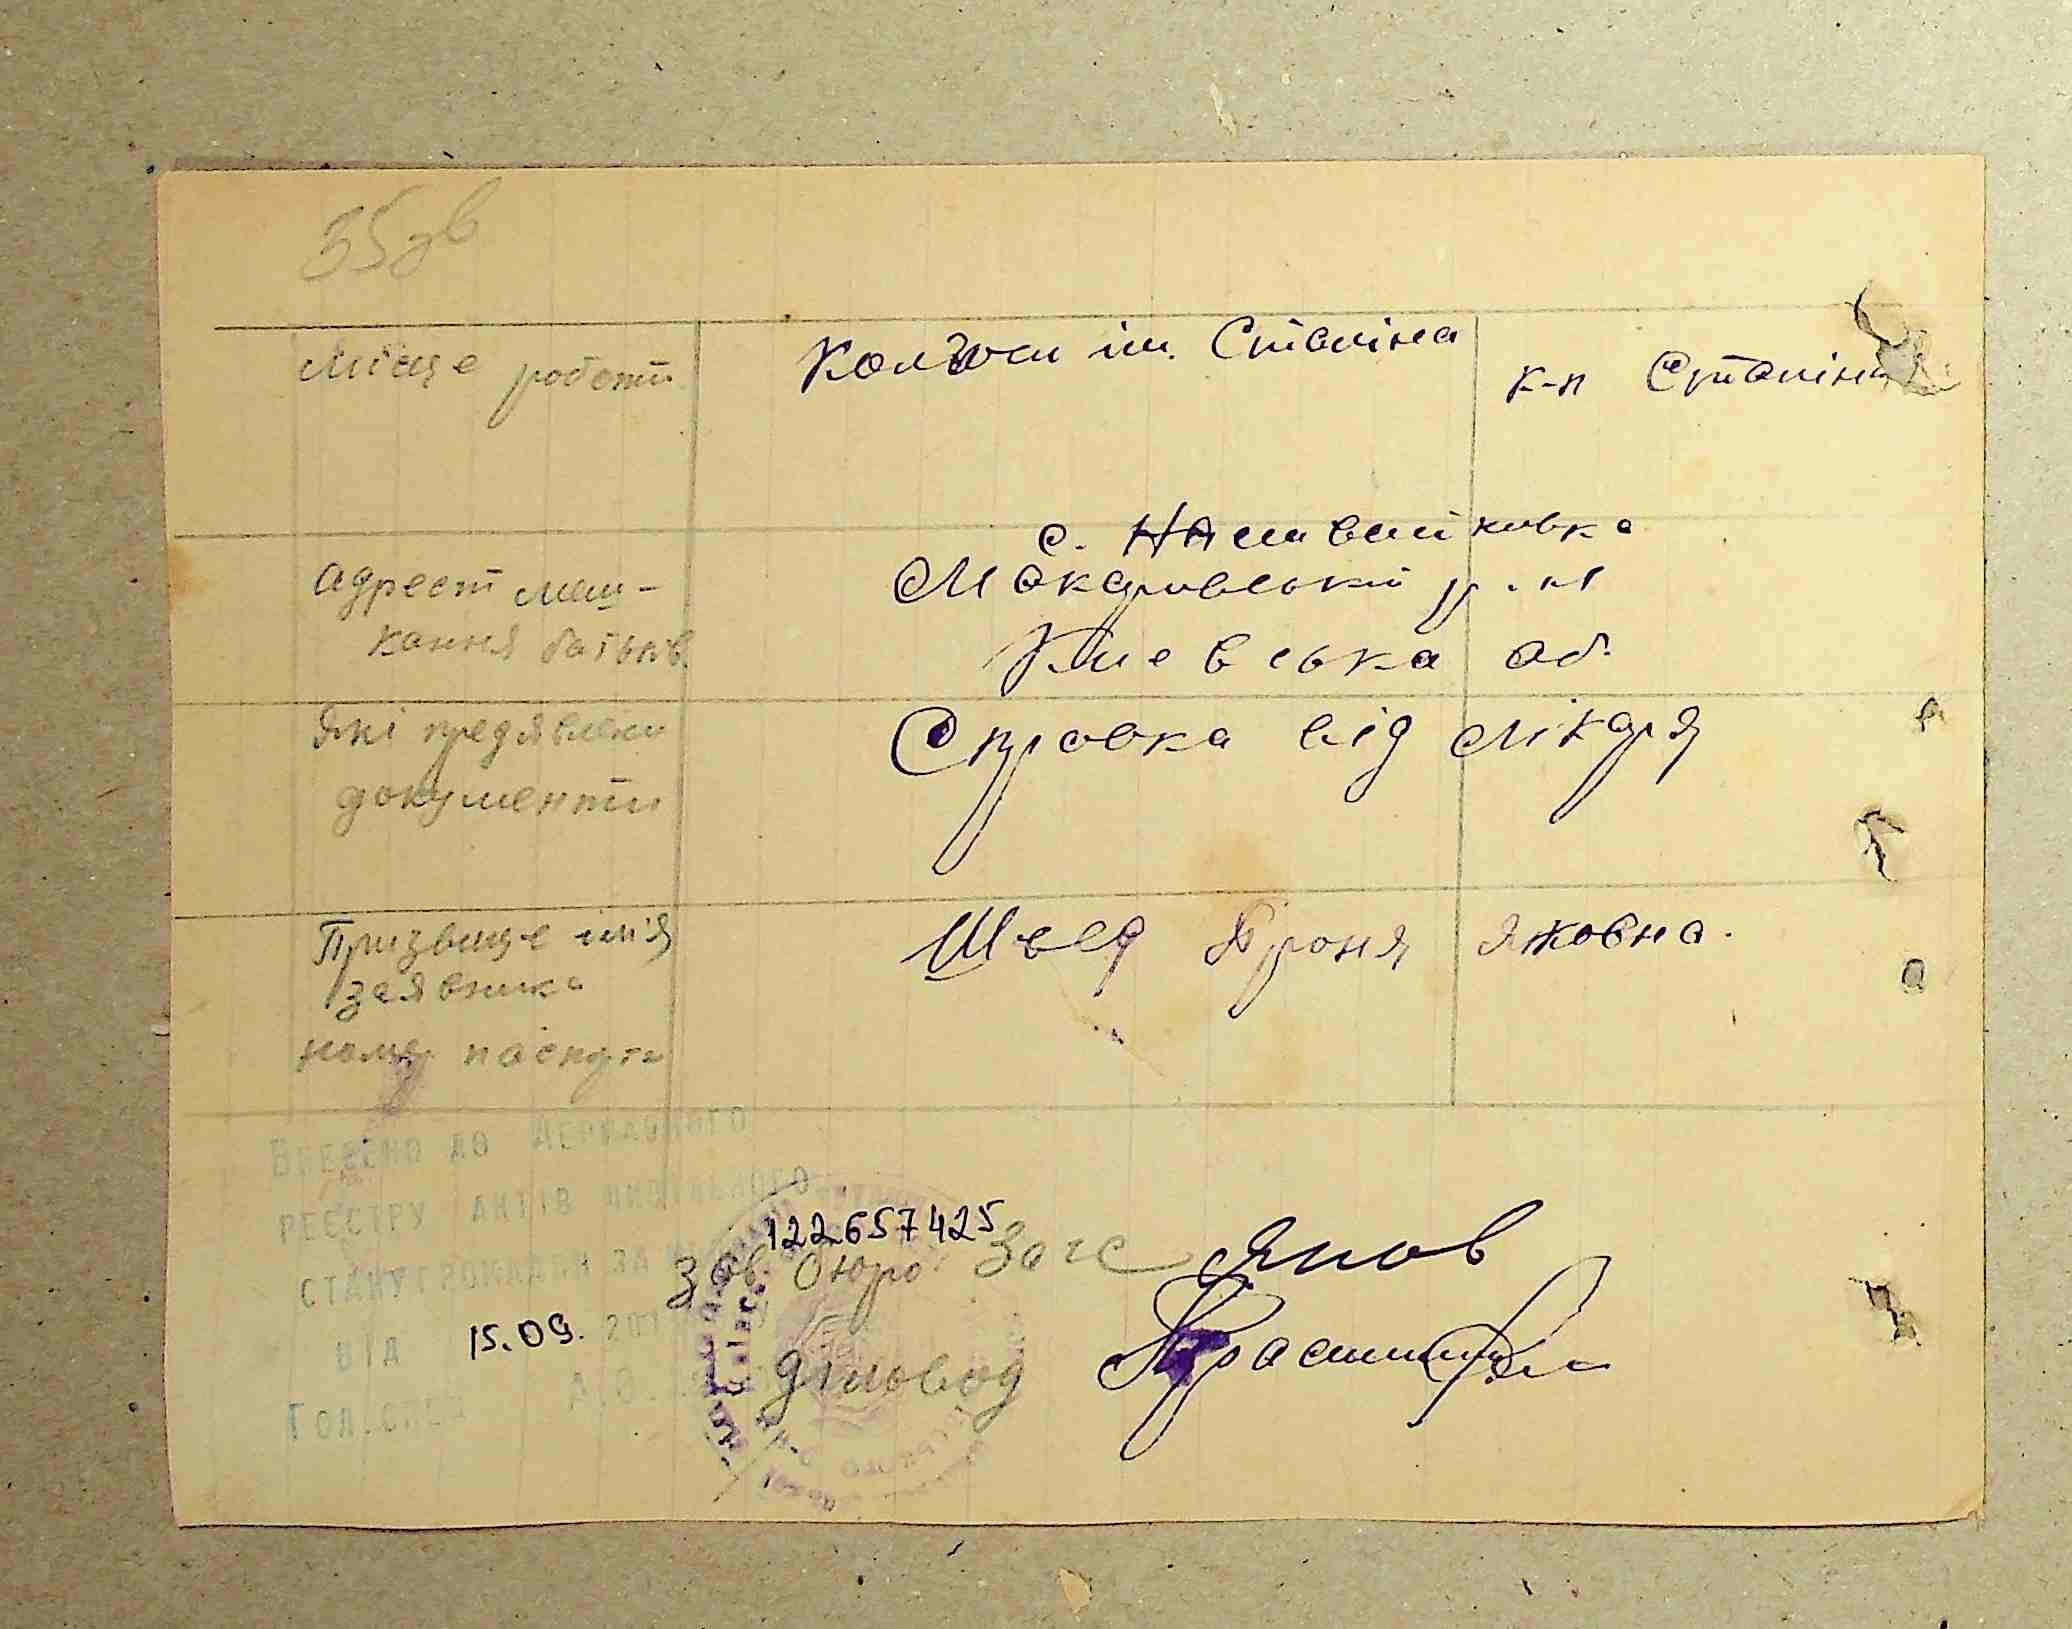 35зв
Місце роботи
Колгосп ім. Сталіна
к-п Сталіна
Адрест меш-
кання батьків
с. Наливайковка
Макарівський р. н
Киевська об.
Які предявлени
документи
Справка від лікаря
Призвище імія
заявника
номер паспорта
Швед Броня Яковна.
Внесено до Державного
реєстру актів цивільного
стану громадян за №
122657425
від 15.09. 201
Гол.спец А.О.
Зав. бюро Загс
діловод